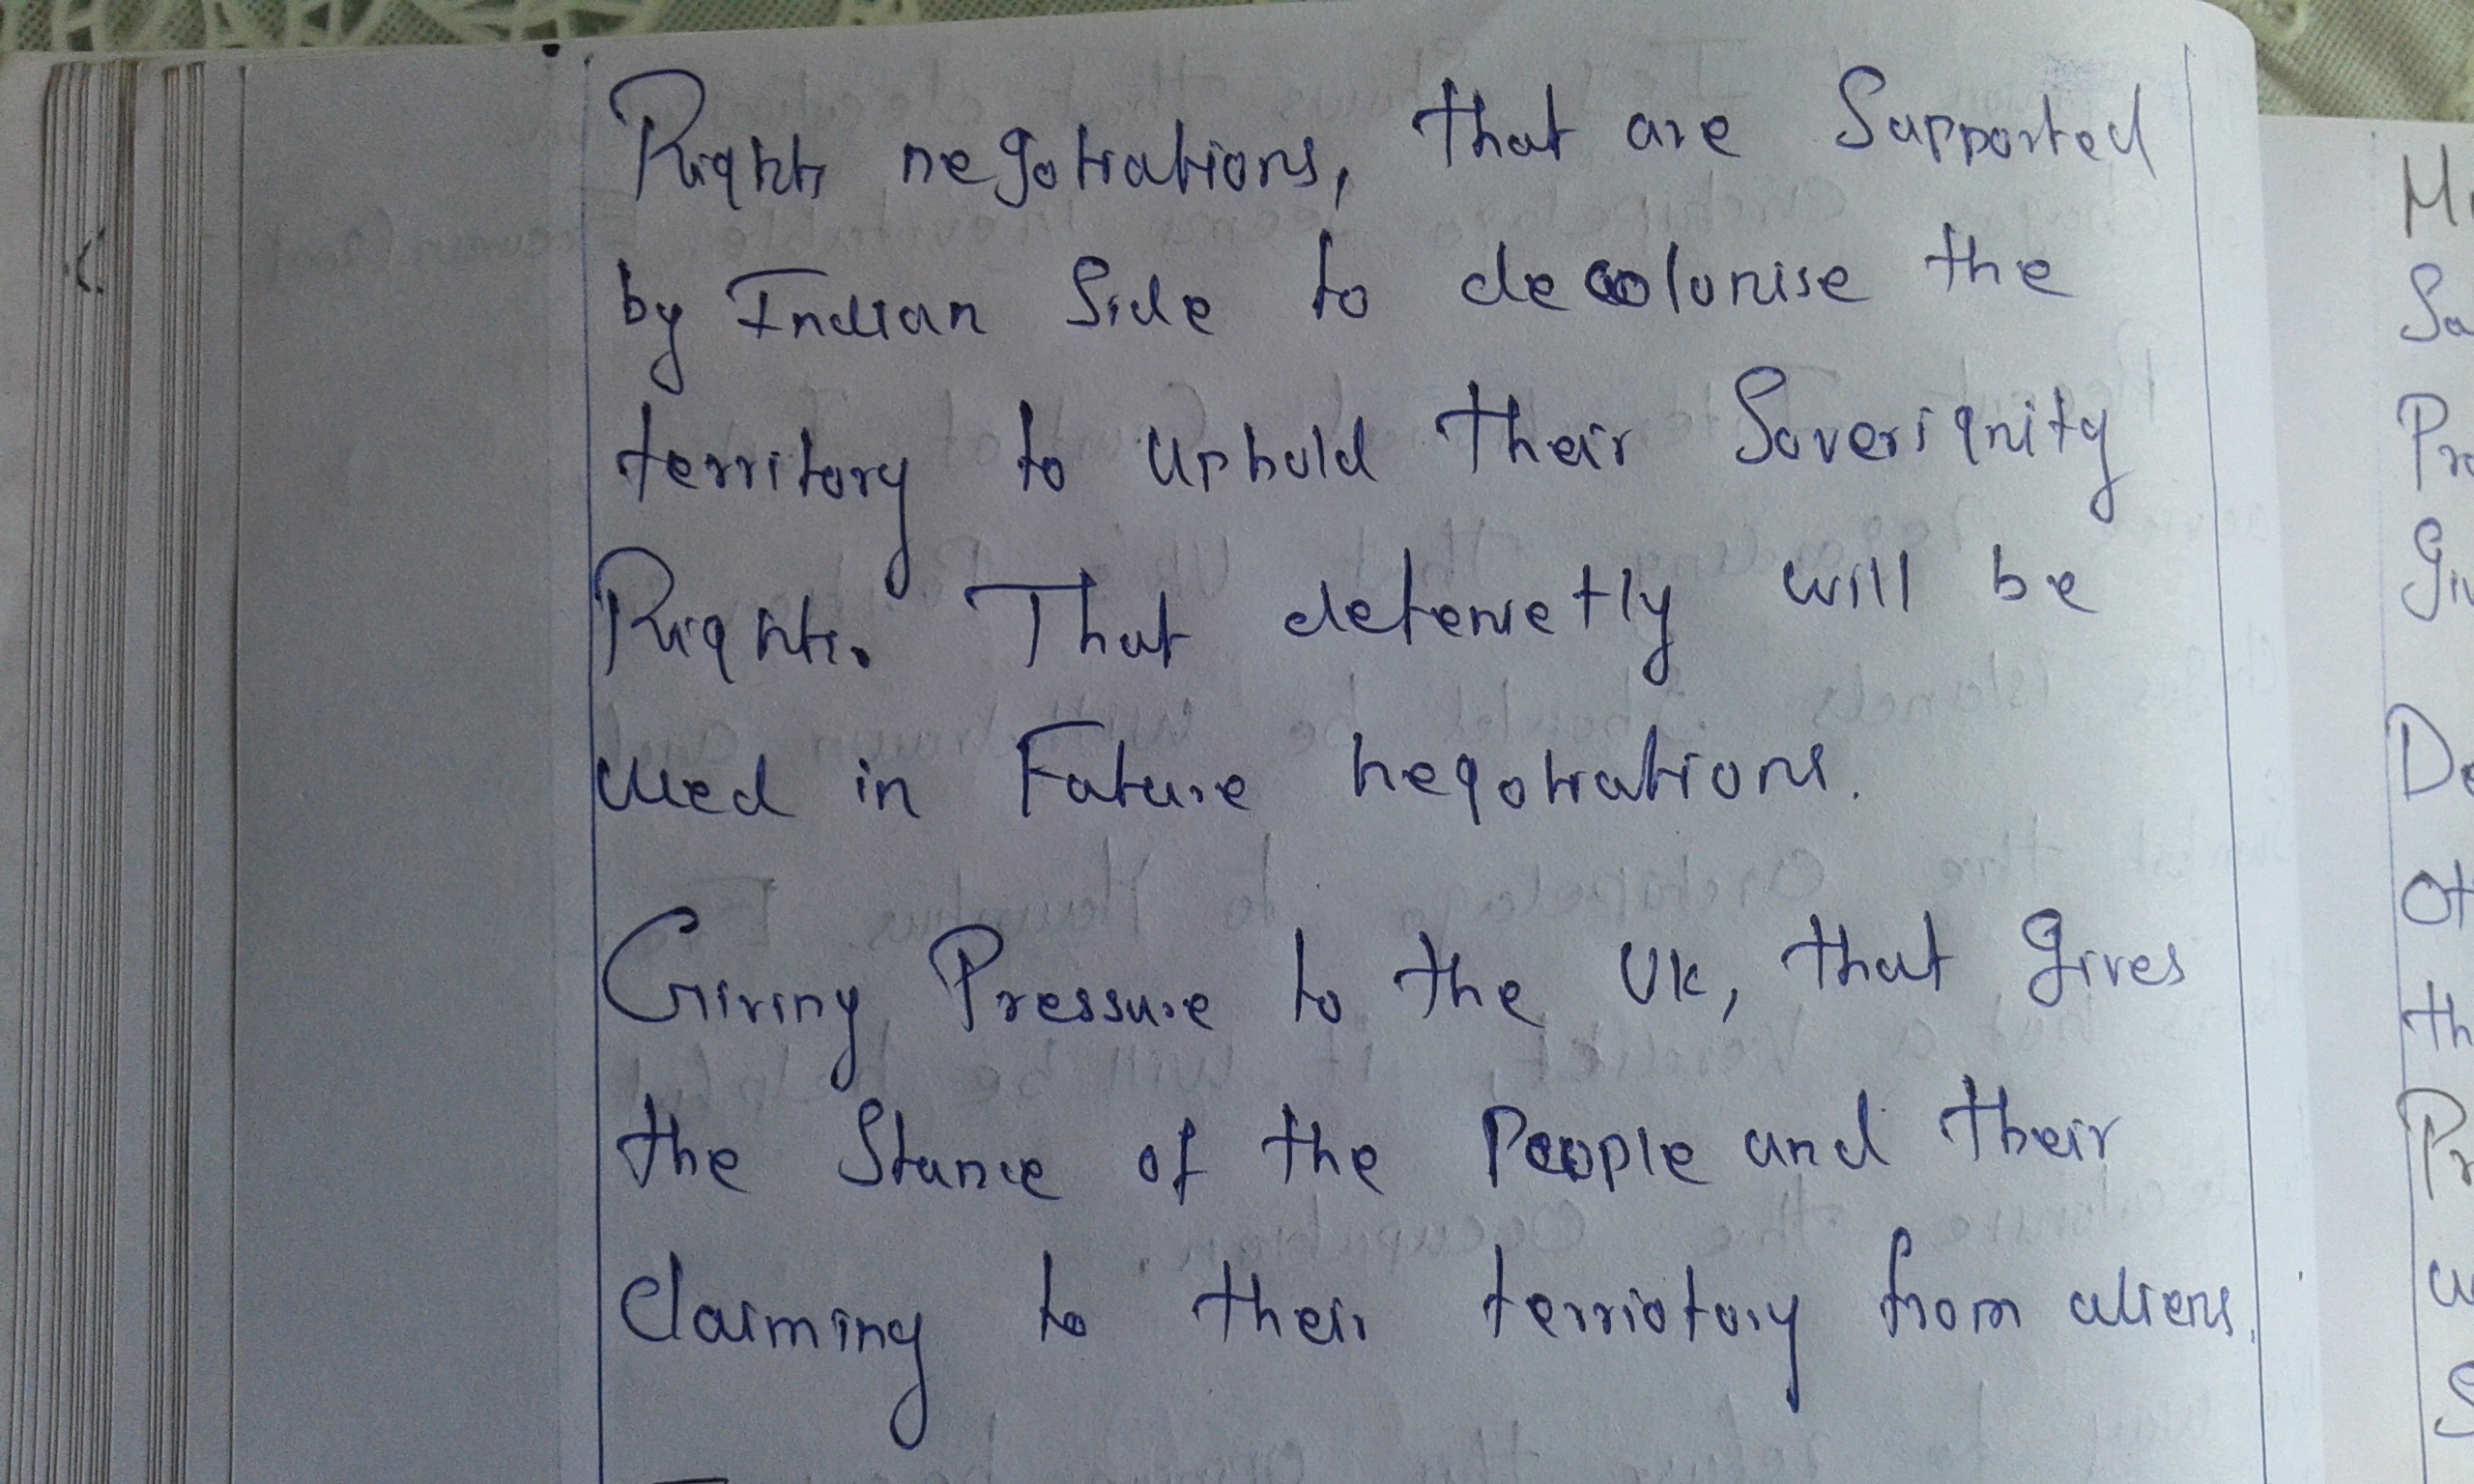 Rights negotiations, that are Supported
by Indian Side to decolonise the
territory to uphold their Soverignity
Rights. That defenietly will be
used in Future negotiations.
Giving Pressure to the UK, that gives
the Stance of the People and their
Claiming to their terriotory from aliens.